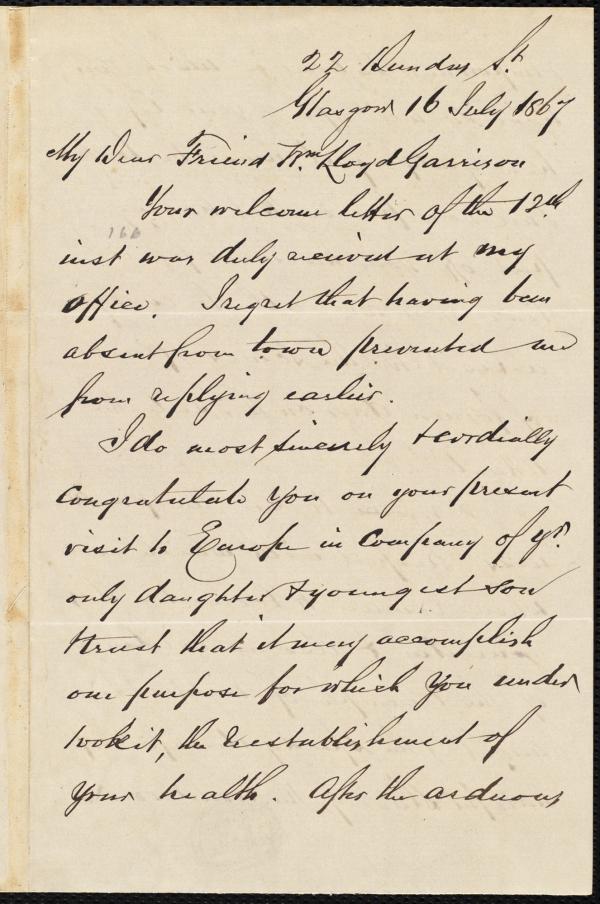 22 Dundas St.
Glasgow 16 July 1867
My Dear Friend Wm. Lloyd Garrison
Your welcome letter of the 12th
166
inst was duly received at my
office. I regret that having been
absent from town prevented me
from replying earlier.
I do most sincerely & cordially
congratulate you on your present
visit to Europe in company of yr.
only daughter & youngest son
& trust that it may accomplish
one purpose for which you under
took it, the reestablishment of
your health. After the arduous